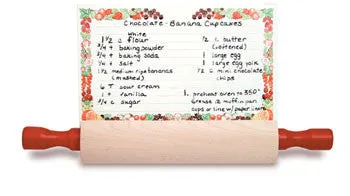 Chocolate-Banana Cupcakes
White
1 1/2 c flour
3/4 t baking powder
3/4 t baking soda
1/4 t salt
1 1/2 medium ripe bananas
(mashed)
6 T sour cream
1 t vanilla
3/4 c sugar
1/2 c. butter
(softened)
1 large egg
1 large egg yolk
1/2 c mini chocolate
chips
1. preheat oven to 350°
Grease 12 muffin pan
cups or line w/ paper liners